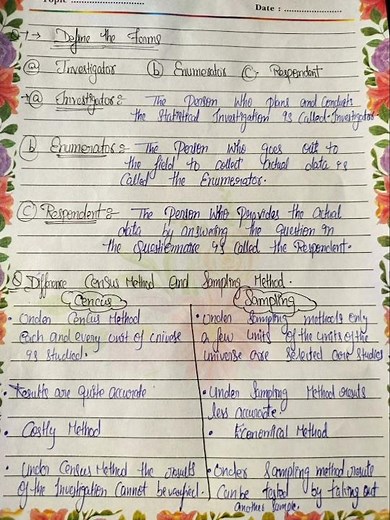 Topic ........................
Date : ........................
Q1 → Define the Terms
(a) Investigator (b) Enumerator (c) Respondent
(a) Investigator :- The Person who plans and conducts
the Statistical Investigation is Called Investigator
(b) Enumerator :- The Person who goes out to
the field to collect actual data is
Called the Enumerator.
(c) Respondent :- The Person who Provides the actual
data by answering the question in
the Questionnaire is Called the Respondent.
Difference Census Method and Sampling Method.
Cencus
Sampling
• Under Cencus Method
each and every unit of universe
is studied.
• Under Sampling methods only
a few units of the units of the
universe are Selected are Studied
• Results are quite accurate
• Under Sampling Method results
less accurate.
• Costly Method
• Economical Method
• Under Census Method the results
of the Investigation Cannot be verified.
• Under Sampling method results
Can be tested by taking out
another sample.